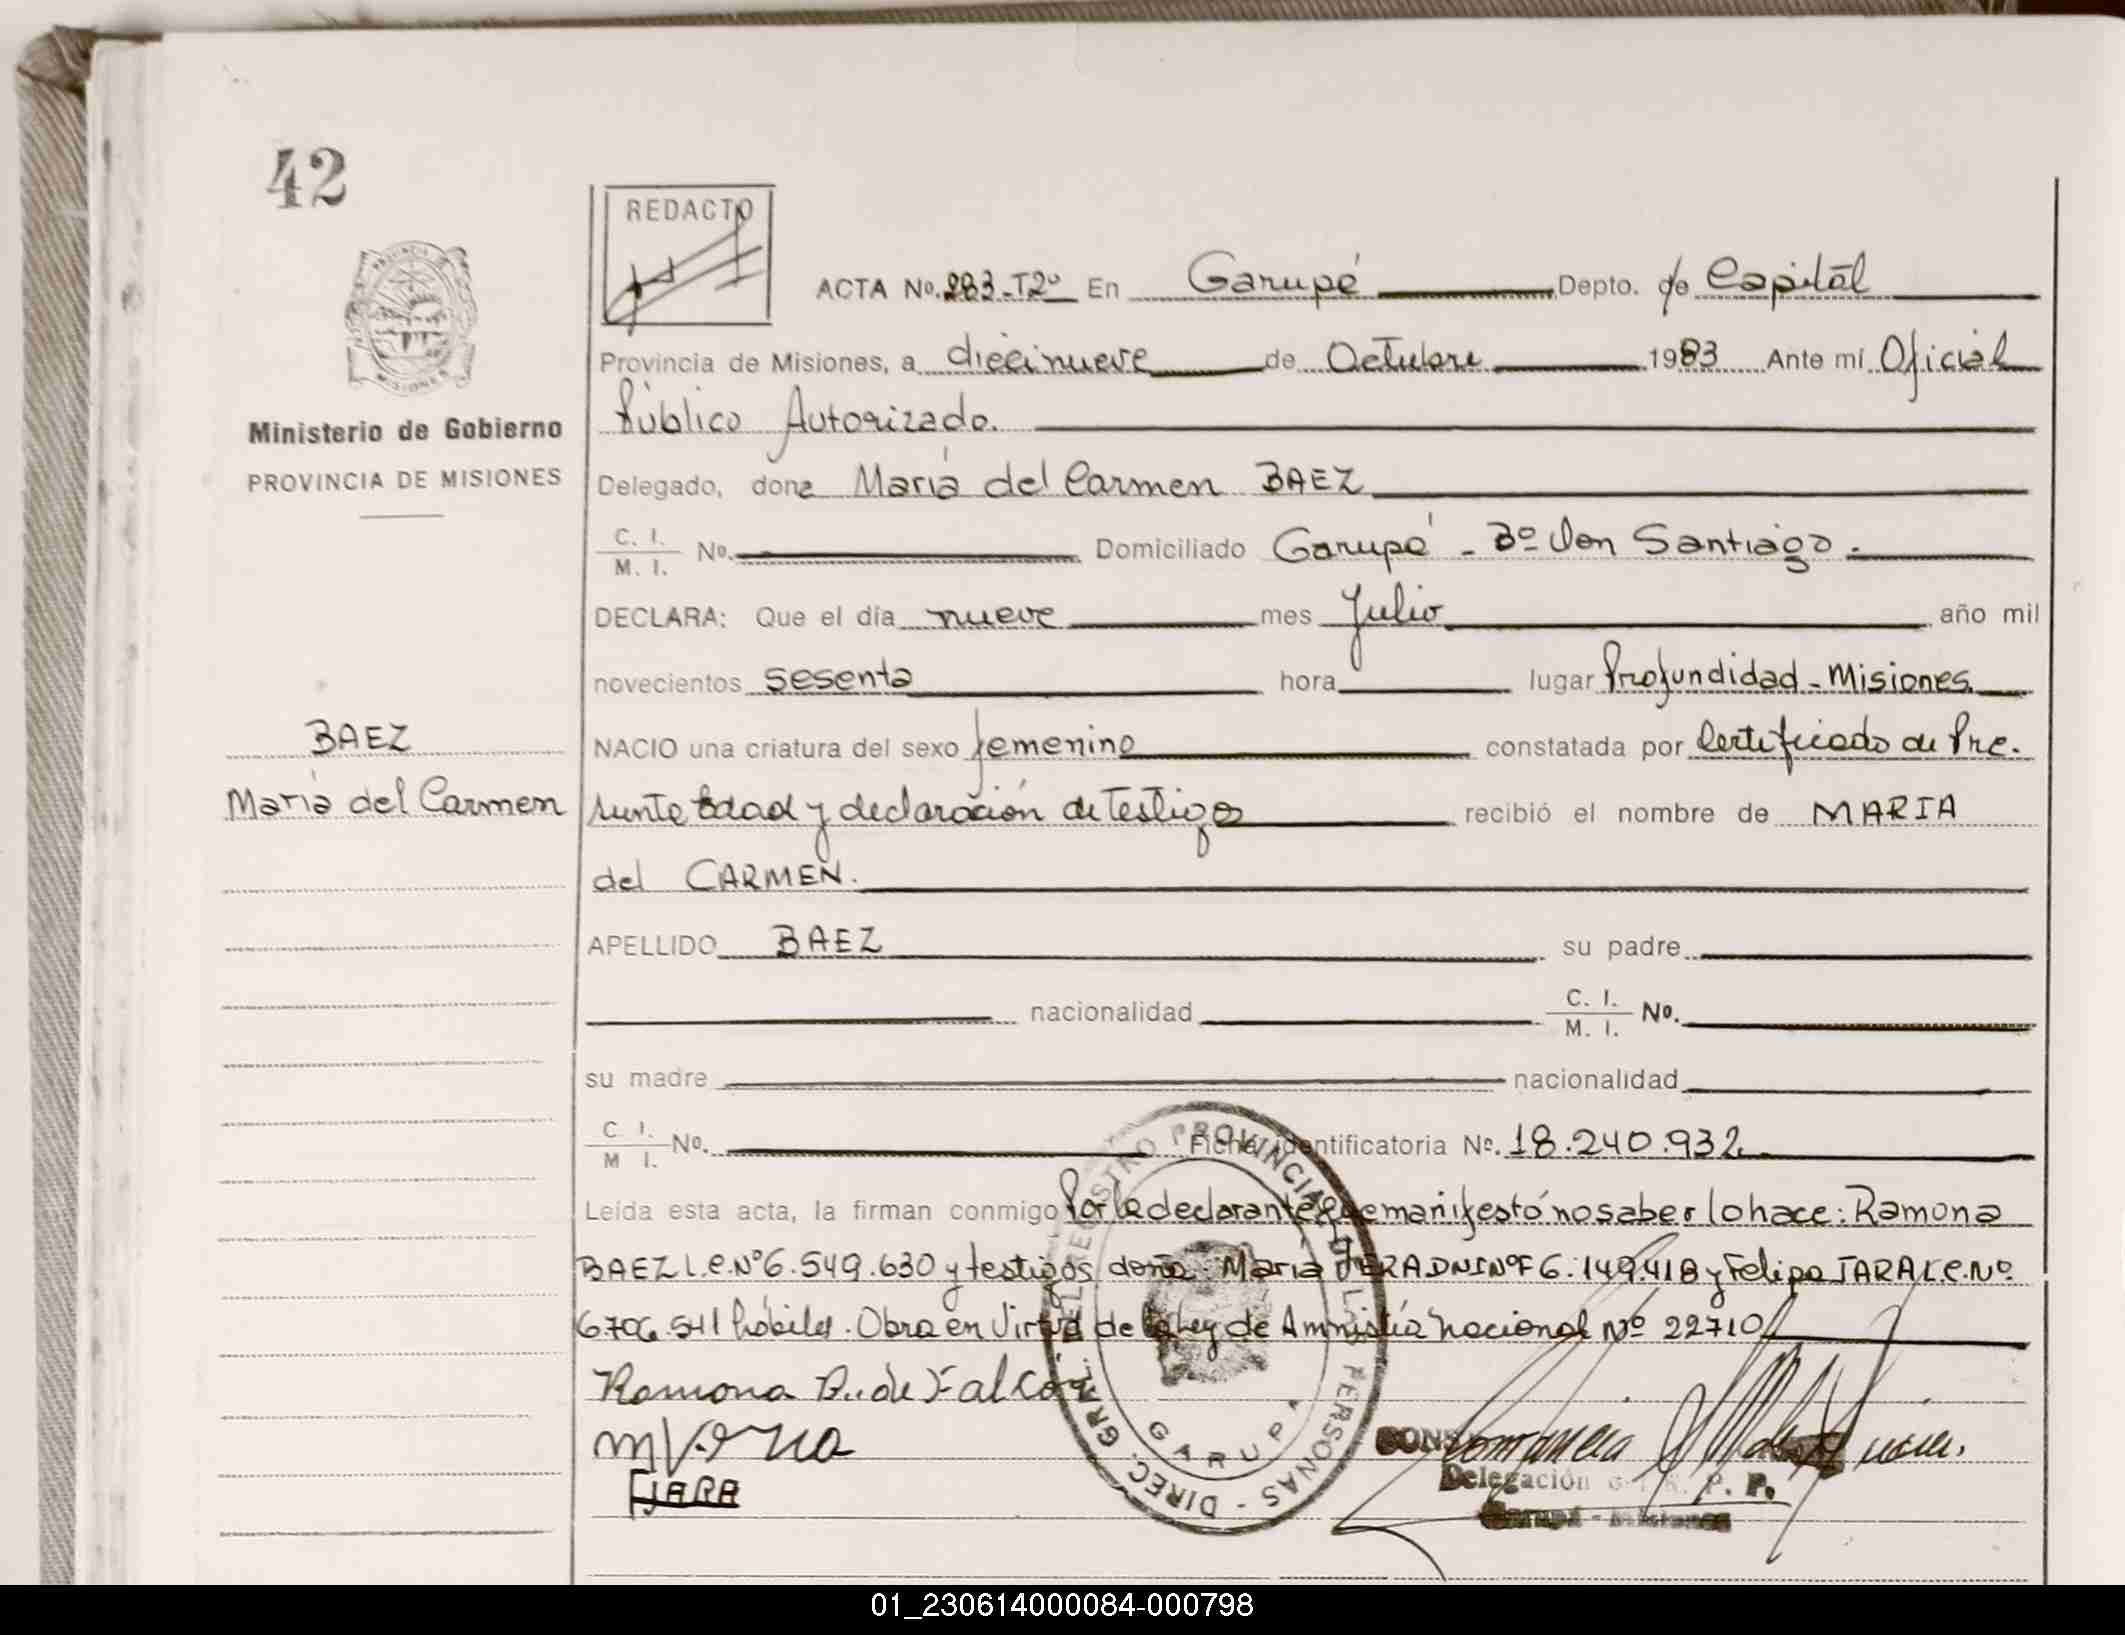 42
REDACTO
ACTA No. 283-T2º En Garupá Depto. de Capital
Provincia de Misiones, a diecinueve de Octubre 1983 Ante mí Oficial
Ministerio de Gobierno
Público Autorizado.
PROVINCIA DE MISIONES
Delegado, dona María del Carmen BAEZ
C. I.
M. I. No. Domiciliado Garupá - Bº Don Santiago.
DECLARA: Que el día nueve mes Julio año mil
novecientos sesenta hora lugar Profundidad - Misiones
BAEZ
NACIO una criatura del sexo femenino constatada por Certificado de Pre.
María del Carmen
sunta Edad y declaración de Testigos recibió el nombre de MARIA
del CARMEN.
APELLIDO BAEZ su padre
nacionalidad C. I.
M. I. No.
su madre nacionalidad
C I.
M I. No. Ficha identificatoria No. 18.240.932
Leída esta acta, la firman conmigo Por la declarante que manifestó no saber lo hace: Ramona
BAEZ L.C.Nº 6.549.630 y testigos doña María VERA DNI Nº F 6.149.418 y Felipa JARA L.C.Nº
6.706.541 hábiles. Obra en Virtud de la Ley de Amnistía Nacional Nº 22710
Ramona B. de Falcón
M Vera
F JARA
DIREC. GRAL. DEL REGISTRO PROVINCIAL DE LAS PERSONAS
GARUPA
Delegación G. I. R. P. P.
Garupá - Misiones
01_230614000084-000798